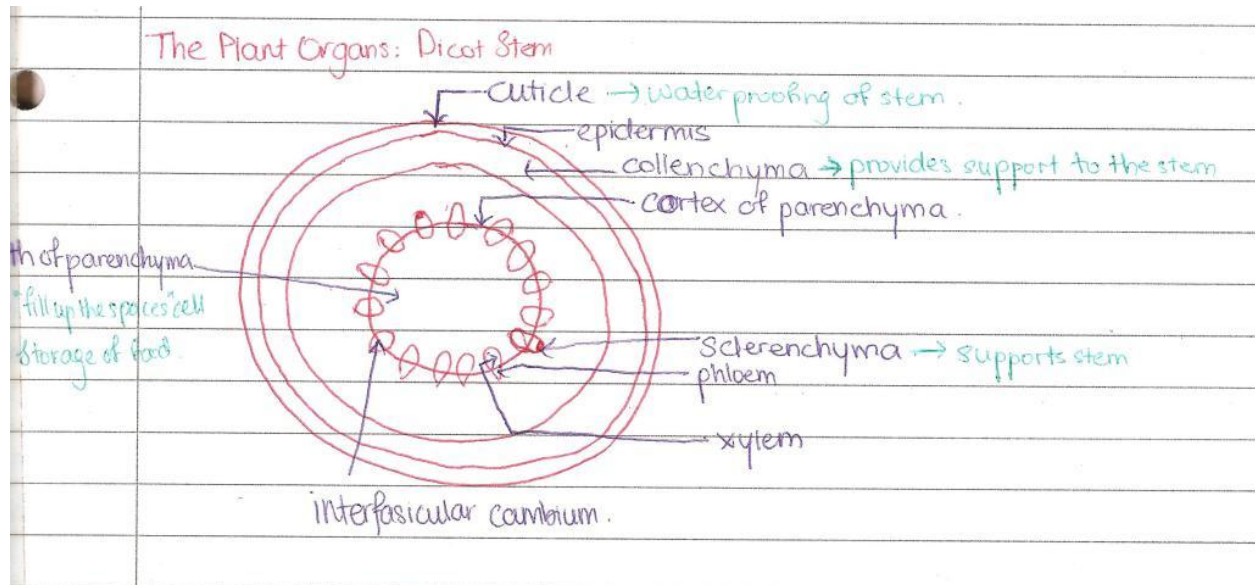 The Plant Organs: Dicot Stem
cuticle → waterproofing of stem.
epidermis
collenchyma → provides support to the stem
cortex of parenchyma.
th of parenchyma
"fill up the spaces" cell
storage of food.
sclerenchyma → supports stem
phloem
xylem
interfasicular cambium.